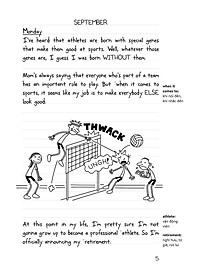 SEPTEMBER
Monday
I've heard that athletes are born with special genes
that make them good at sports. Well, whatever those
genes are, I guess I was born WITHOUT them.
Mom's always saying that everyone who's part of a team
has an important role to play. But when it comes to
sports, it seems like my job is to make everybody ELSE
look good.
when it
comes to:
khi nói đến,
khi nhắc đến
THWACK
UNGH!
At this point in my life, I'm pretty sure I'm not
going to grow up to become a professional athlete. So I'm
officially announcing my retirement.
athlete:
vận động
viên
retirement:
nghỉ hưu, từ
giã, rút lui
5